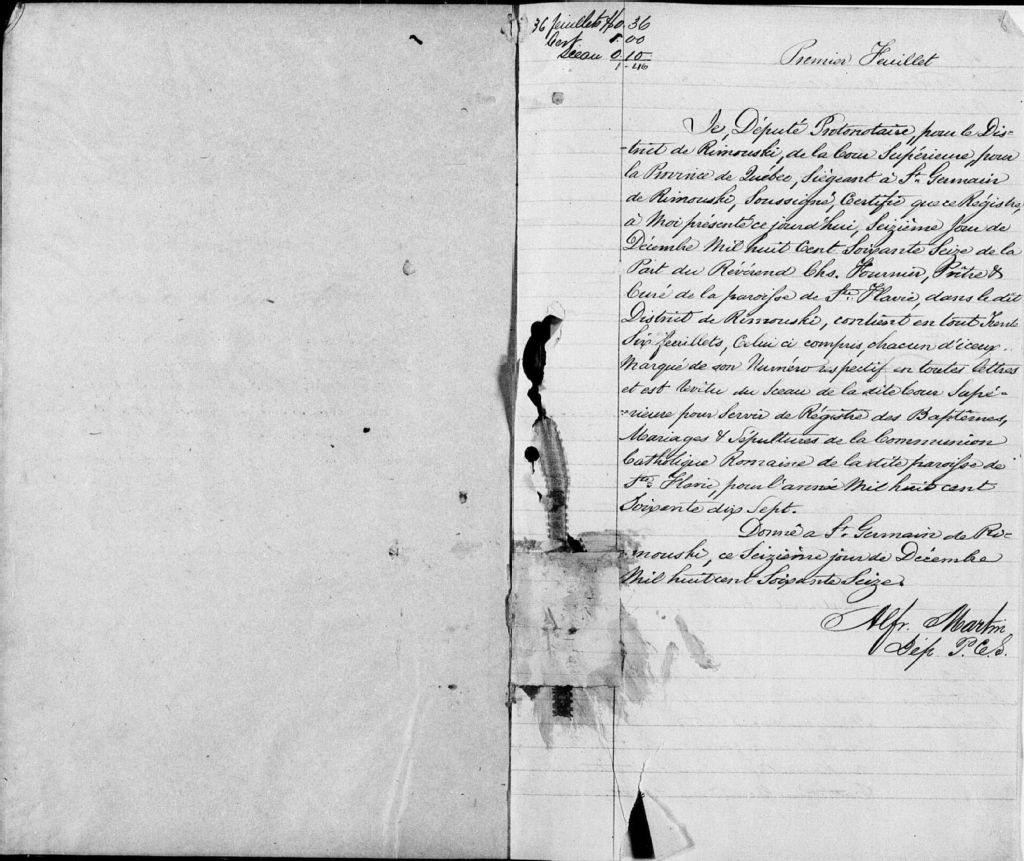 36 feuillets $0.36
Cert 1.00
Sceau 0.10
1.46
Premier Feuillet
Je, Député Protonotaire, pour le Dis-
-trict de Rimouski, de la Cour Supérieure, pour
la Province de Québec, Siégeant à St. Germain
de Rimouski, Soussigné, Certifie que ce Régistre,
à Moi présenté ce jourd'hui, Seizième Jour de
Décembre Mil huit Cent Soixante Seize de la
Part du Révérend Chs. Fournier, Prêtre &
Curé de la paroisse de Ste. Flavie, dans le dit
District de Rimouski, contient en tout Trente
Six feuillets, Celui ci compris, chacun d'iceux
Marqué de son Numéro respectif en toutes lettres
et est revêtu du Sceau de la dite Cour Supé-
-rieure pour Servir de Régistre des Baptêmes,
Mariages & Sépultures de la Communion
Catholique Romaine de la dite paroisse de
Ste. Flavie, pour l'année Mil huit cent
Soixante dix Sept.
Donné a St. Germain de Ri-
-mouski, ce Seizième jour de Décembre
Mil huit cent Soixante Seize.
Alfr. Martin
Dép. P.C.S.